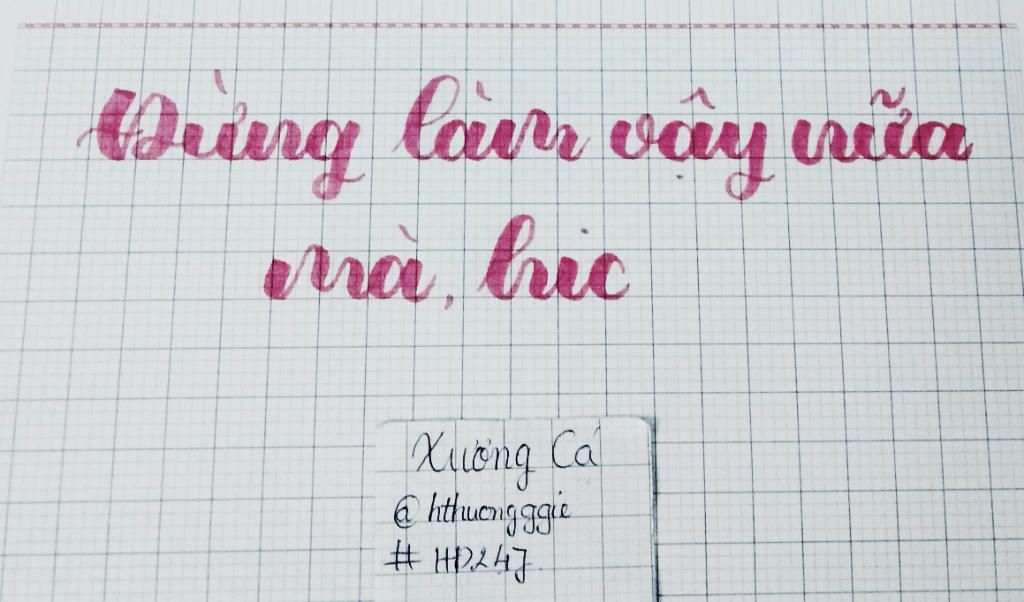 Đừng làm vậy nữa
mà, hic
Xương Cá
@hthuongggie
#HD247